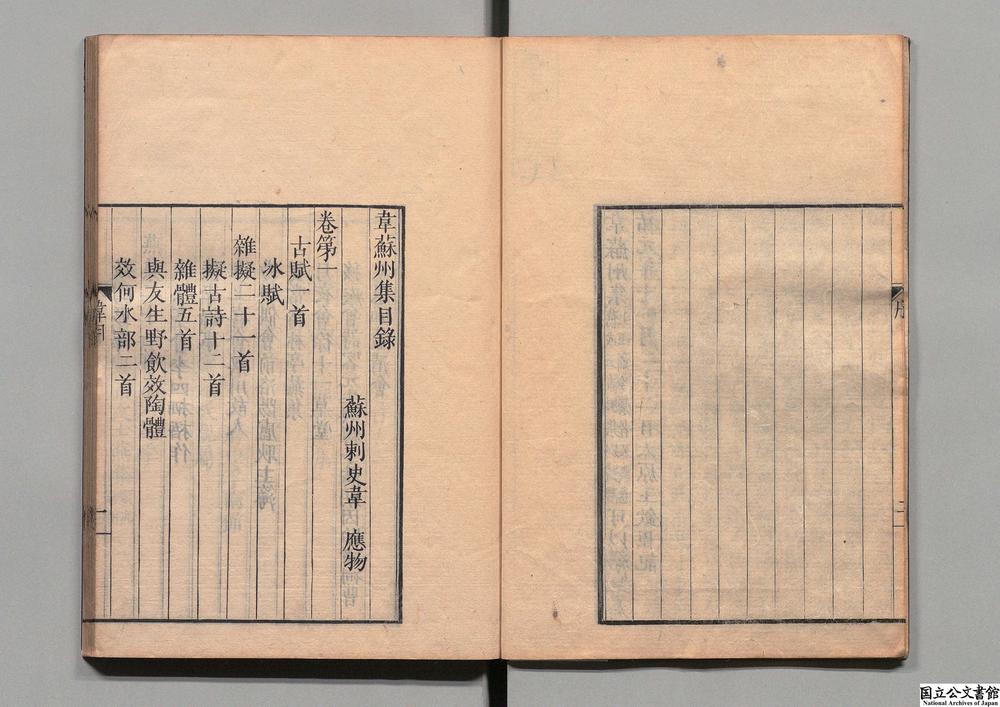 序
二
韋蘇州集目錄
蘇州刺史韋 應物
卷第一
古賦一首
冰賦
雜擬二十一首
擬古詩十二首
雜體五首
與友生野飲效陶體
效何水部二首
韋目
一
国立公文書館
National Archives of Japan